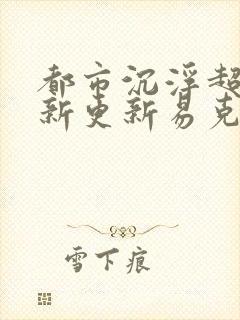 都市沉浮超
新更新易克
雪下痕